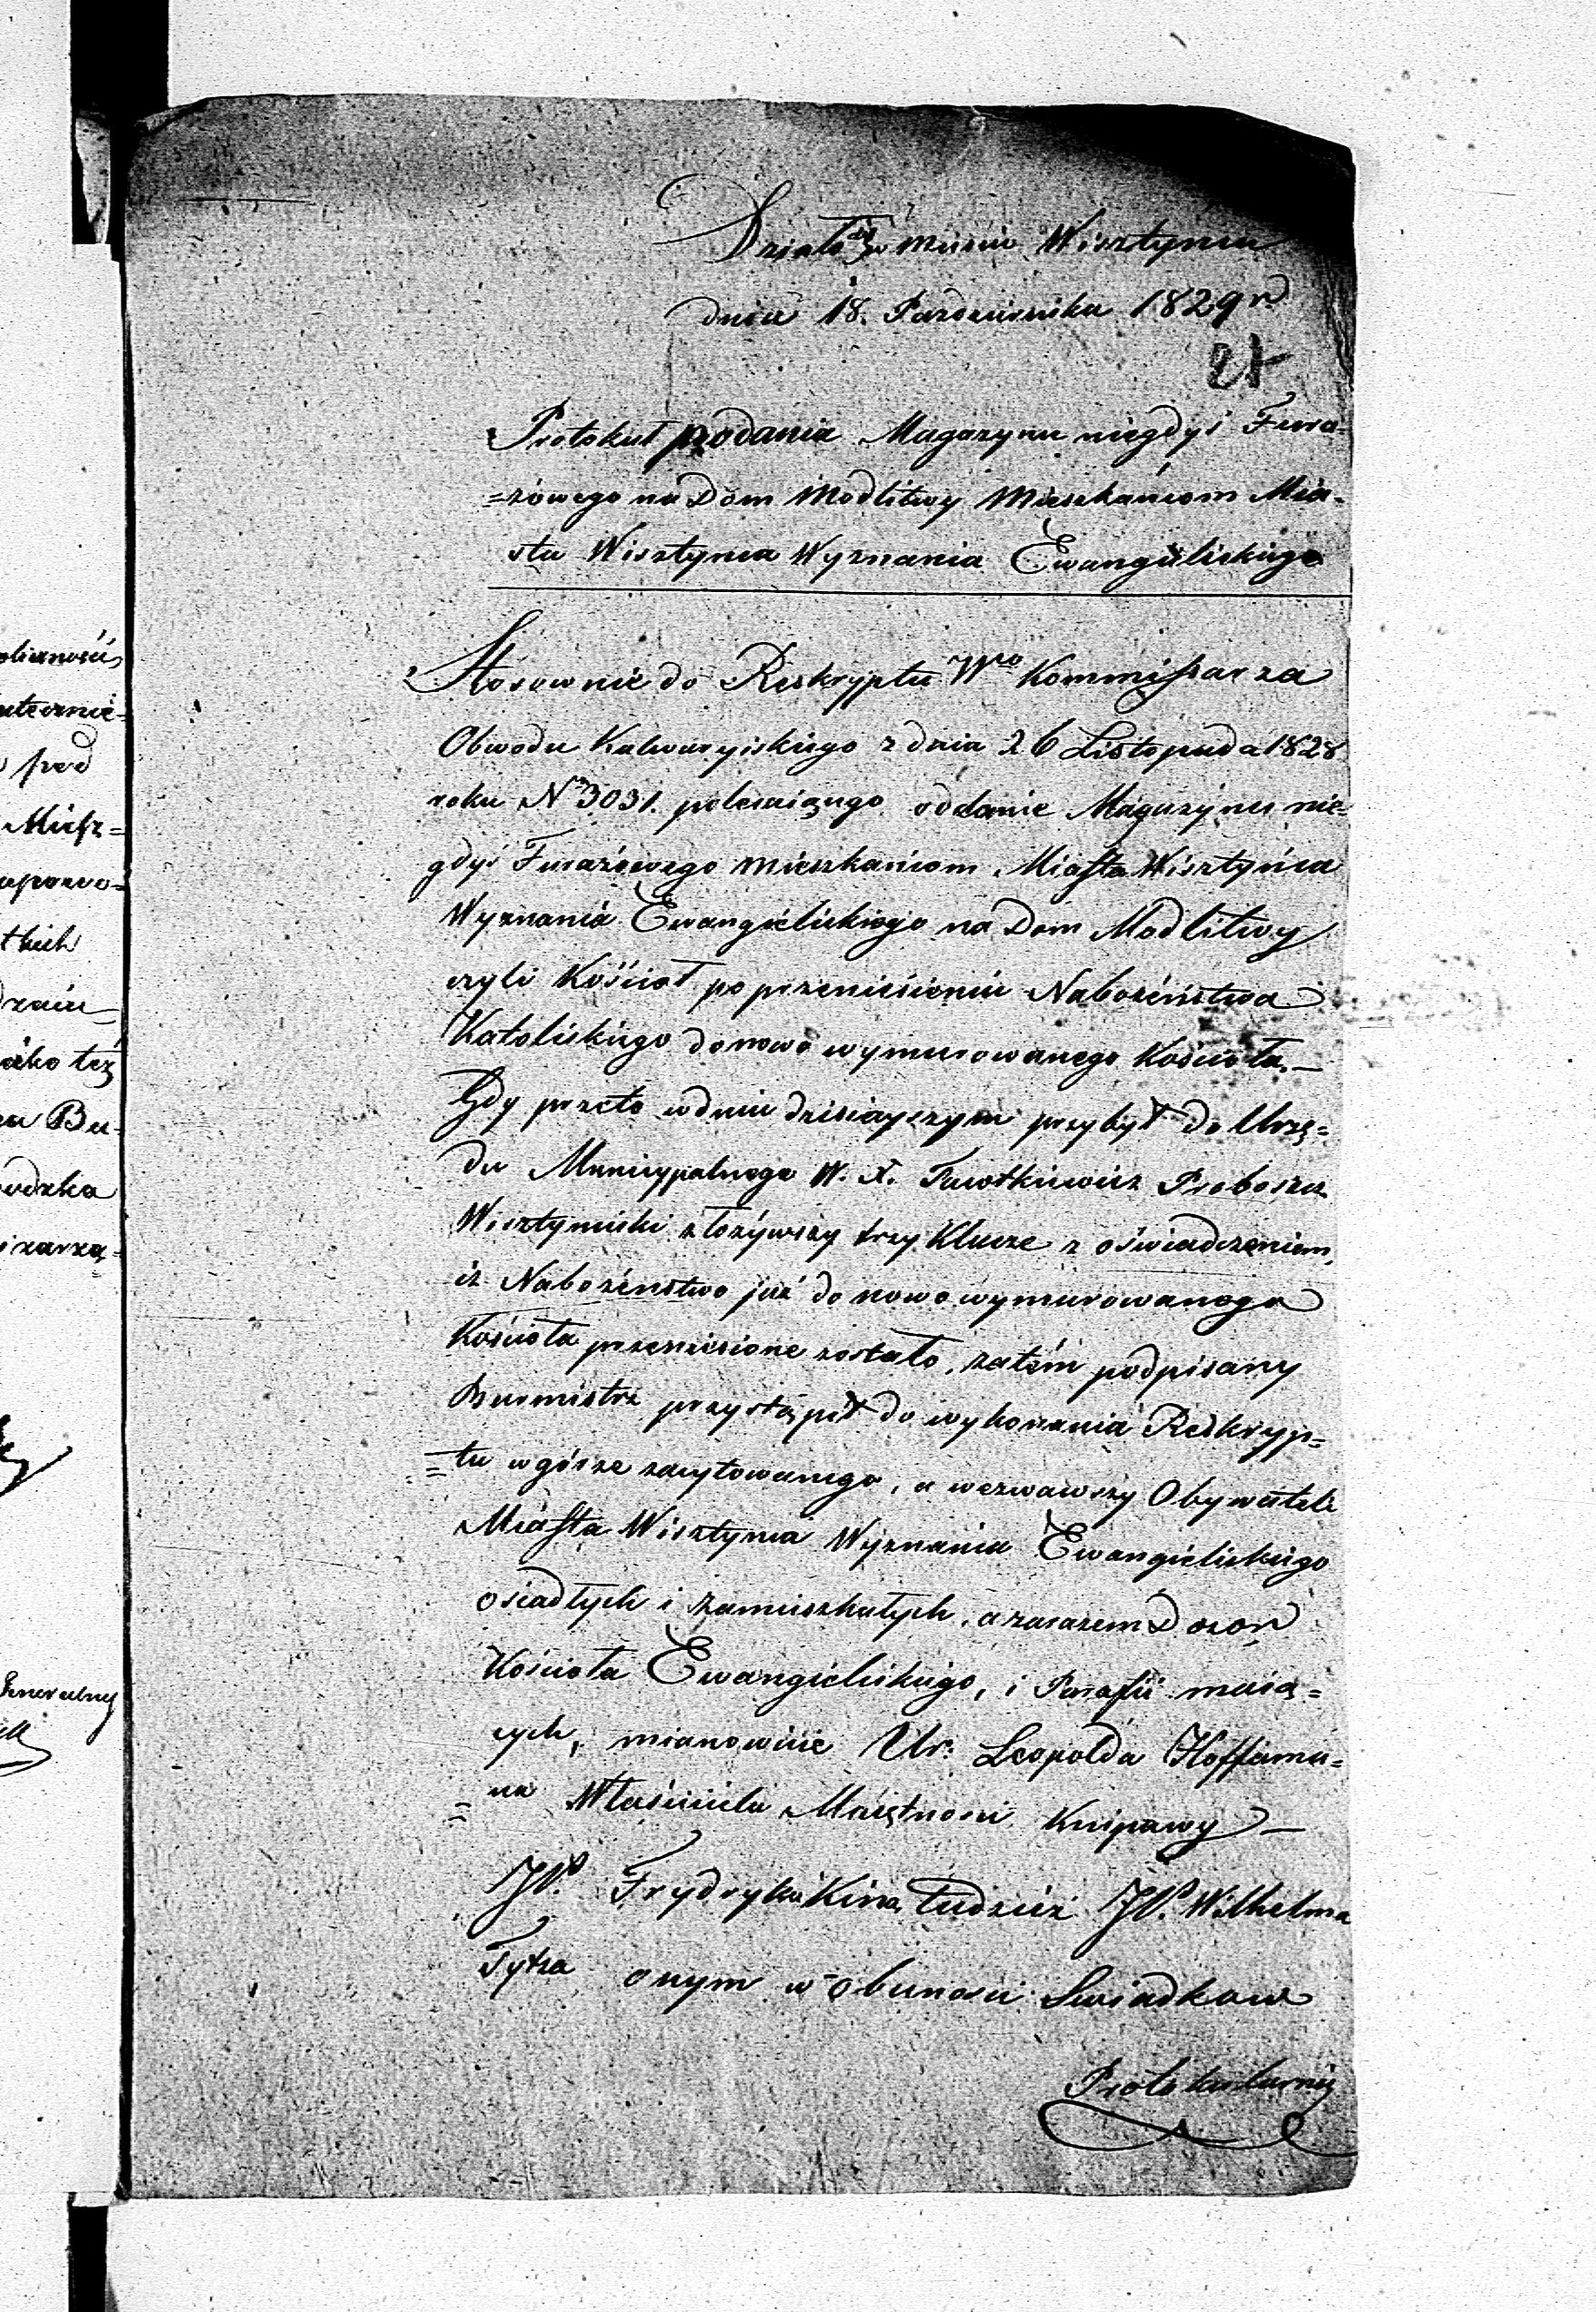 Działo się w Mieście Wisztyńcu
dnia 18. Października 1829 r.
21
Protokuł podania Magazynu niegdyś Fura=
=żowego na Dom Modlitwy Mieszkańcom Mia=
sta Wisztyńca Wyznania Ewangielickiego
Stosownie do Reskryptu Wgo Kommissarza
Obwodu Kalwaryiskiego z dnia 26 Listopada 1828
roku No 3031. polecaiącego oddanie Magazynu nie=
gdyś Furażowego mieszkańcom Miasta Wisztyńca
Wyznania Ewangielickiego na Dom Modlitwy
czyli Kościoł po przeniesieniu Nabożeństwa
Katolickiego do nowo wymurowanego Kościoła.—
Gdy przeto w dniu dzisiayszym przybył do Urzę=
du Municypalnego W. X. Pawołkiewicz Proboszcz
Wisztyniecki złożywszy trzy Klucze z oświadczeniem,
iż Nabożeństwo już do nowo wymurowanego
Kościoła przeniesione zostało, zatém podpisany
Burmistrz przystąpił do wykonania Reskryp=
=tu w górze zacytowanego, a wezwawszy Obywateli
Miasta Wisztyńca Wyznania Ewangielickiego
osiadłych i zamieszkałych, a zarazem Dozor
Kościoła Ewangielickiego, i Parafii maią=
cych, mianowicie Ur: Leopolda Hoffama=
=na Właściciela Maiętności Knipawy—
JP. Fryderyka Kina tudzież JP. Wilhelma
Tytza onym w obecności Swiadkow
Protokularnie
olicznoścи
utecznie=
pod
Miesz=
t kich
iako też
Bu=
zarzą=
Generalny